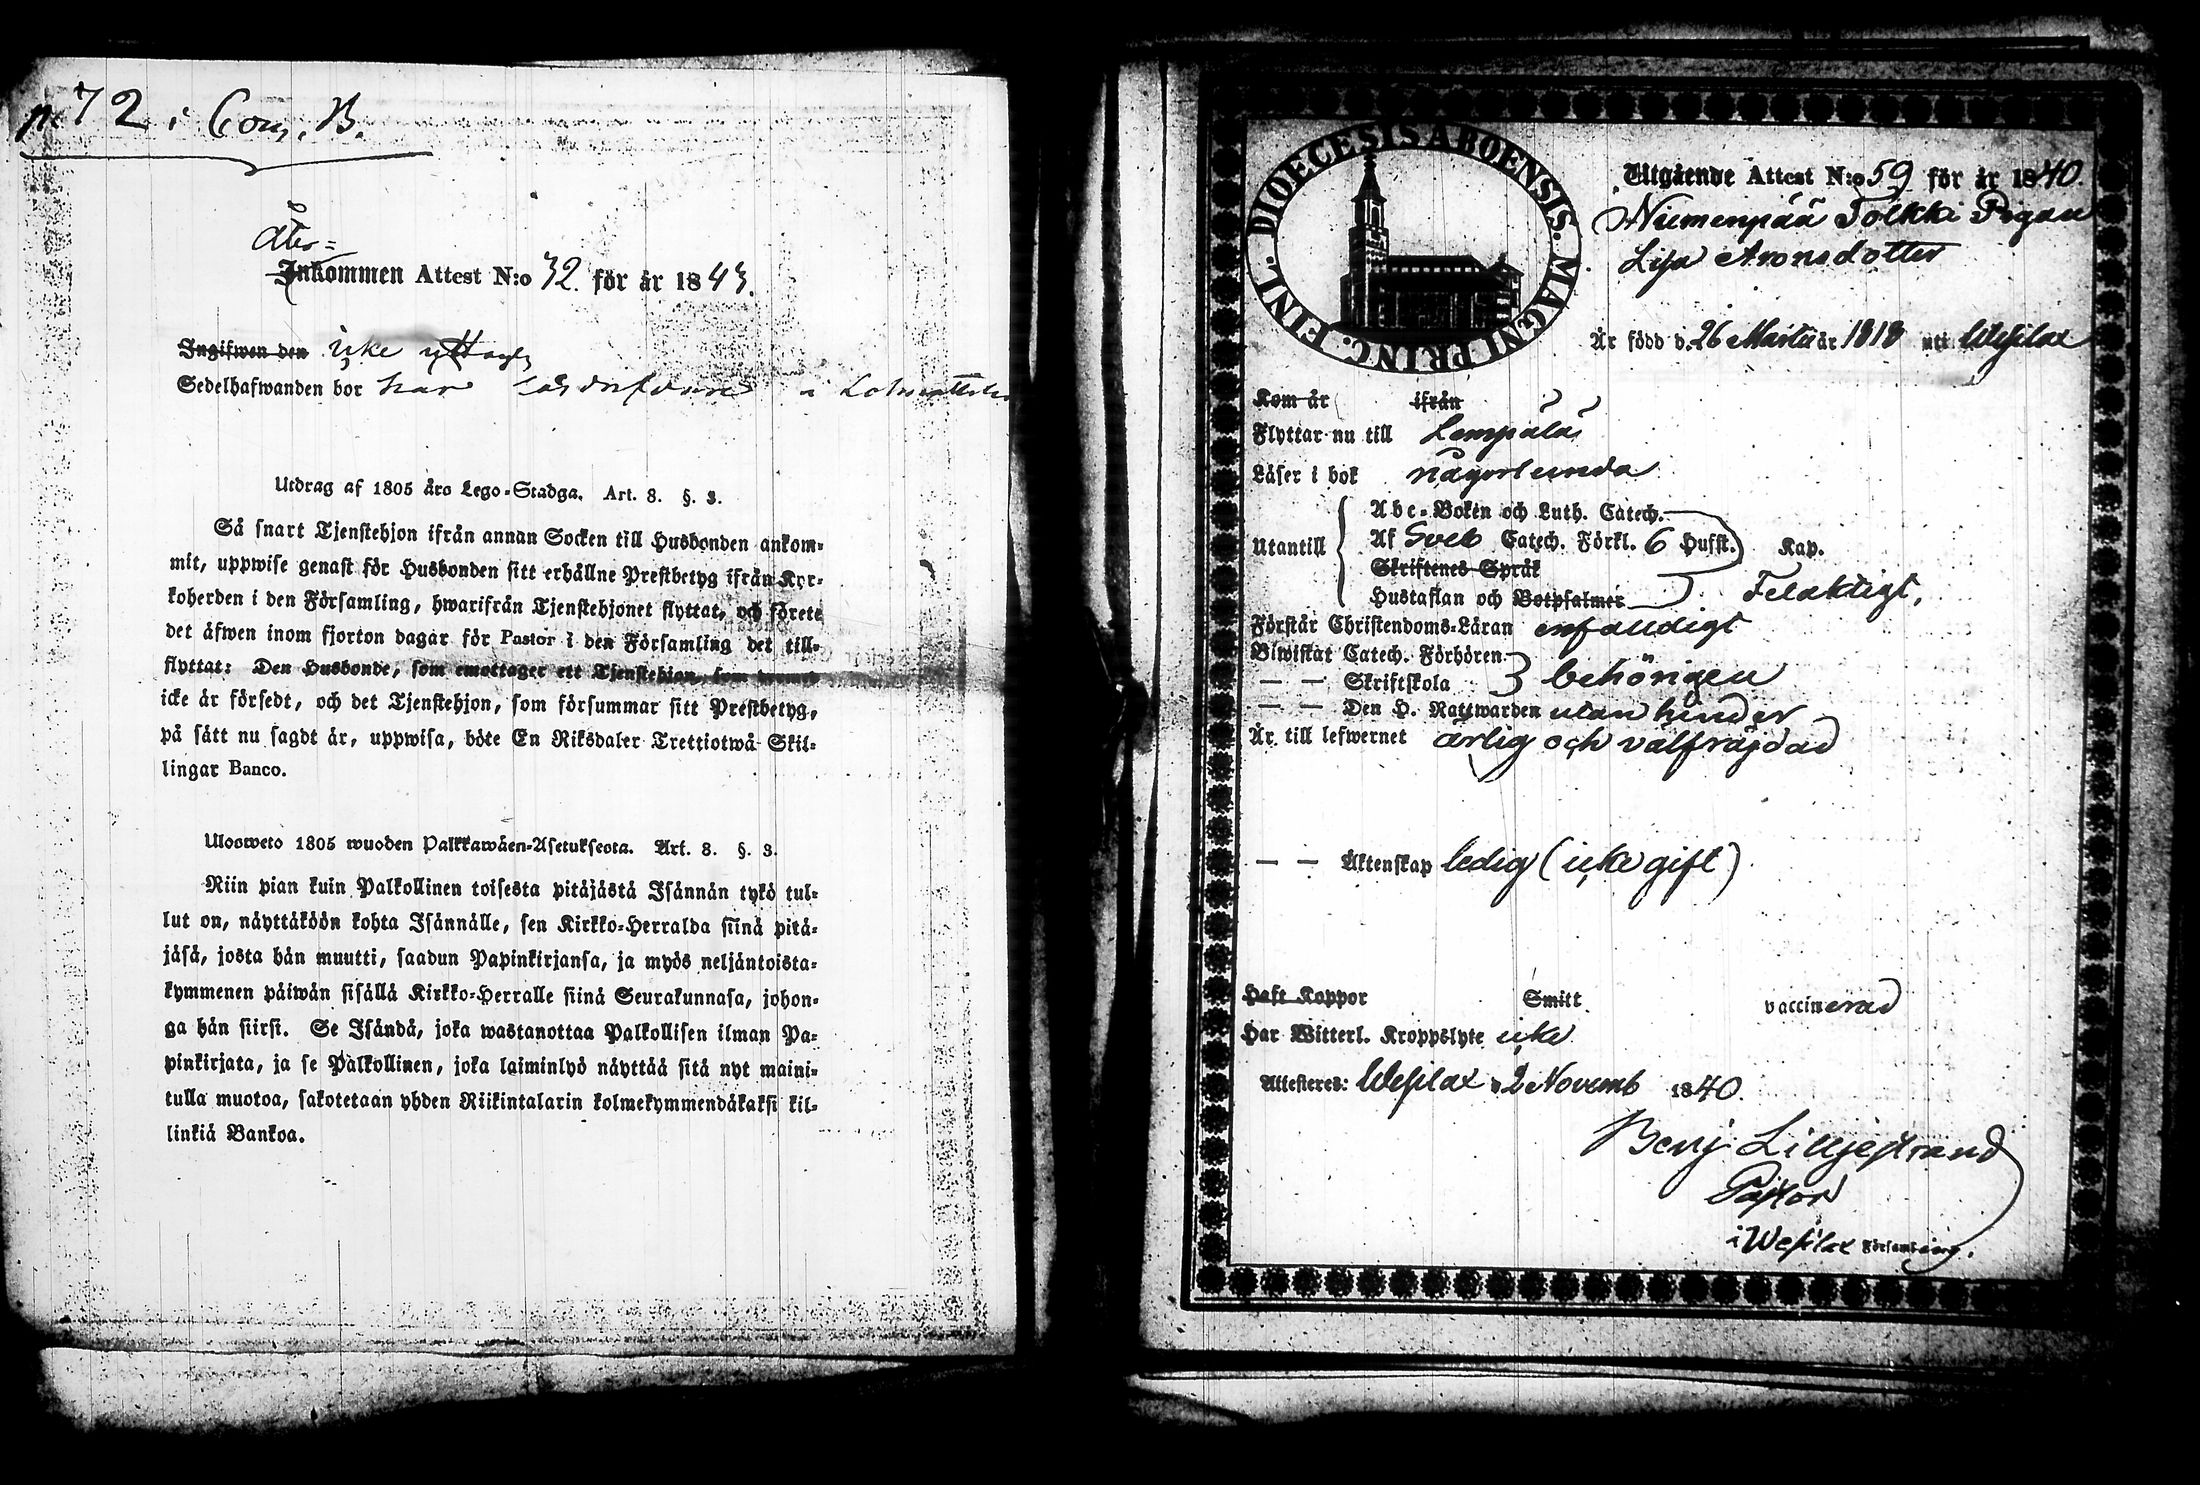 72 i Com. B.
Åter=
Inkommen Attest N:o 72. för år 1843.
Ingifwen den icke
Sedelhafwanden bor har i
Utdrag af 1805 års Lego-Stadga. Art. 8. §. 3.
Så snart Tjenstehjon ifrån annan Socken till Husbonden ankom=
mit, uppwise genast för Husbonden sitt erhållne Prestbetyg ifrån Kyr=
koherden i den Församling, hwarifrån Tjenstehjonet flyttat, och förete
det äfwen inom fjorton dagar för Pastor i den Församling det till=
flyttat: Den Husbonde, som emottager ett Tjenstehjon, som dermed
icke är försedt, och det Tjenstehjon, som försummar sitt Prestbetyg,
på sätt nu sagdt är, uppwisa, böte En Riksdaler Trettiotwå Skil=
lingar Banco.
Ulosweto 1805 wuoden Palkkawäen-Asetuksesta. Art. 8. §. 3.
Niin pian kuin Palkollinen toisesta pitäjästä Isännän tykö tul=
lut on, näyttäköön kohta Isännälle, sen Kirkko=Herralda siinä pitä=
jäsä, josta hän muutti, saadun Papinkirjansa, ja myös neljäntoista=
kymmenen päiwän sisällä Kirkko=Herralle siinä Seurakunnasa, johon=
ga hän siirsi. Se Isändä, joka wastanottaa Palkollisen ilman Pa=
pinkirjata, ja se Palkollinen, joka laiminlyö näyttää sitä nyt maini=
tulla muotoa, sakotetaan yhden Riikintalarin kolmekymmendäkaksi kil=
linkiä Bankoa.
DIOECESIS ABOENSIS. MAGNI PRINC. FINL.
Utgående Attest N:o 59 för år 1840.
Niemenpää Tolkki Pigan
Lisa Aronsdotter
Är född d. 26 Martii år 1818 uti Wesilax
Kom år ifrån
Flyttar nu till Lempälä
Läser i bok någorlunda
Utantill
Abc-Boken och Luth. Catech.
Af Sveb Catech. Förkl. 6 Hufst. Kap.
Skriftenes Språk
Hustaflan och Botpsalmer Felaktigt.
Förstår Christendoms-Läran enfaldigt
Biwistat Catech. Förhören
— — Skriftskola behörigen
— — Den H. Nattwarden utan hinder
Är till lefwernet ärlig och välfrägdad
— — Äktenskap ledig (icke gift)
Haft Koppor Smitt vaccinerad
Har Witterl. Kroppslyte icke
Attesteres: Wesilax d. 2 Novemb 1840.
Benj Lilljestrand
Pastor
i Wesilax Församling.